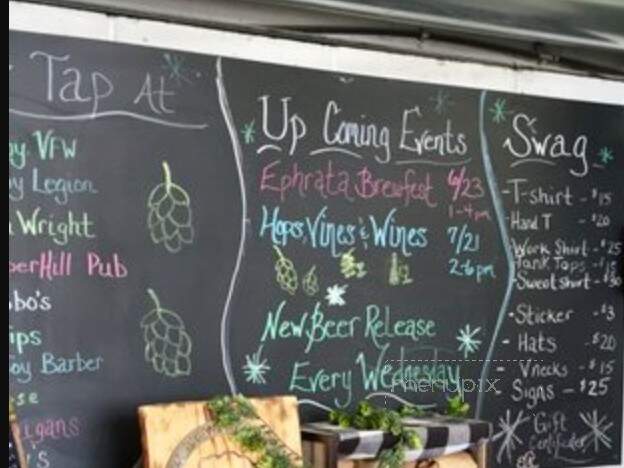 Tap At
VFW
Legion
Wright
Hill Pub
Barber
Up Coming Events
Ephrata Brewfest 6/23
1-4pm
Hops, Vines & Wines 7/21
2-6pm
New Beer Release
Every Wednesday
Swag
-T-shirt - $15
-Hand T - $20
Work Shirt - $25
Tank Tops - $15
-Sweatshirt - $30
-Sticker - $3
- Hats - $20
- Vnecks - $15
- Signs - $25
Gift
Certificates
menupix